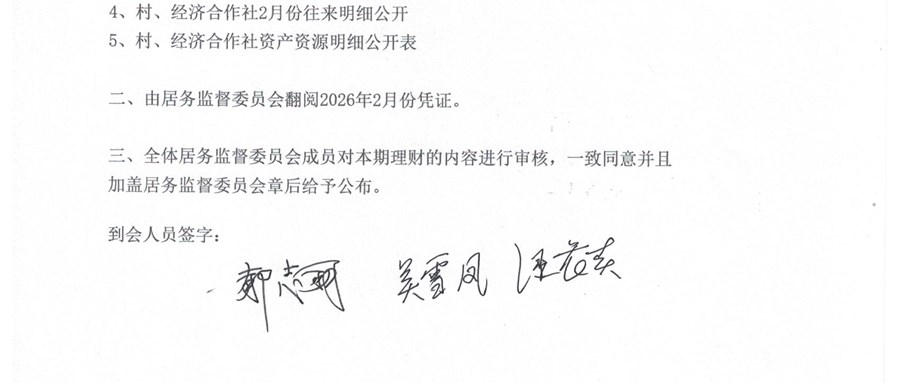 4、村、经济合作社2月份往来明细公开
5、村、经济合作社资产资源明细公开表
二、由居务监督委员会翻阅2026年2月份凭证。
三、全体居务监督委员会成员对本期理财的内容进行审核，一致同意并且
加盖居务监督委员会章后给予公布。
到会人员签字：
郑志 吴雪凤 汪